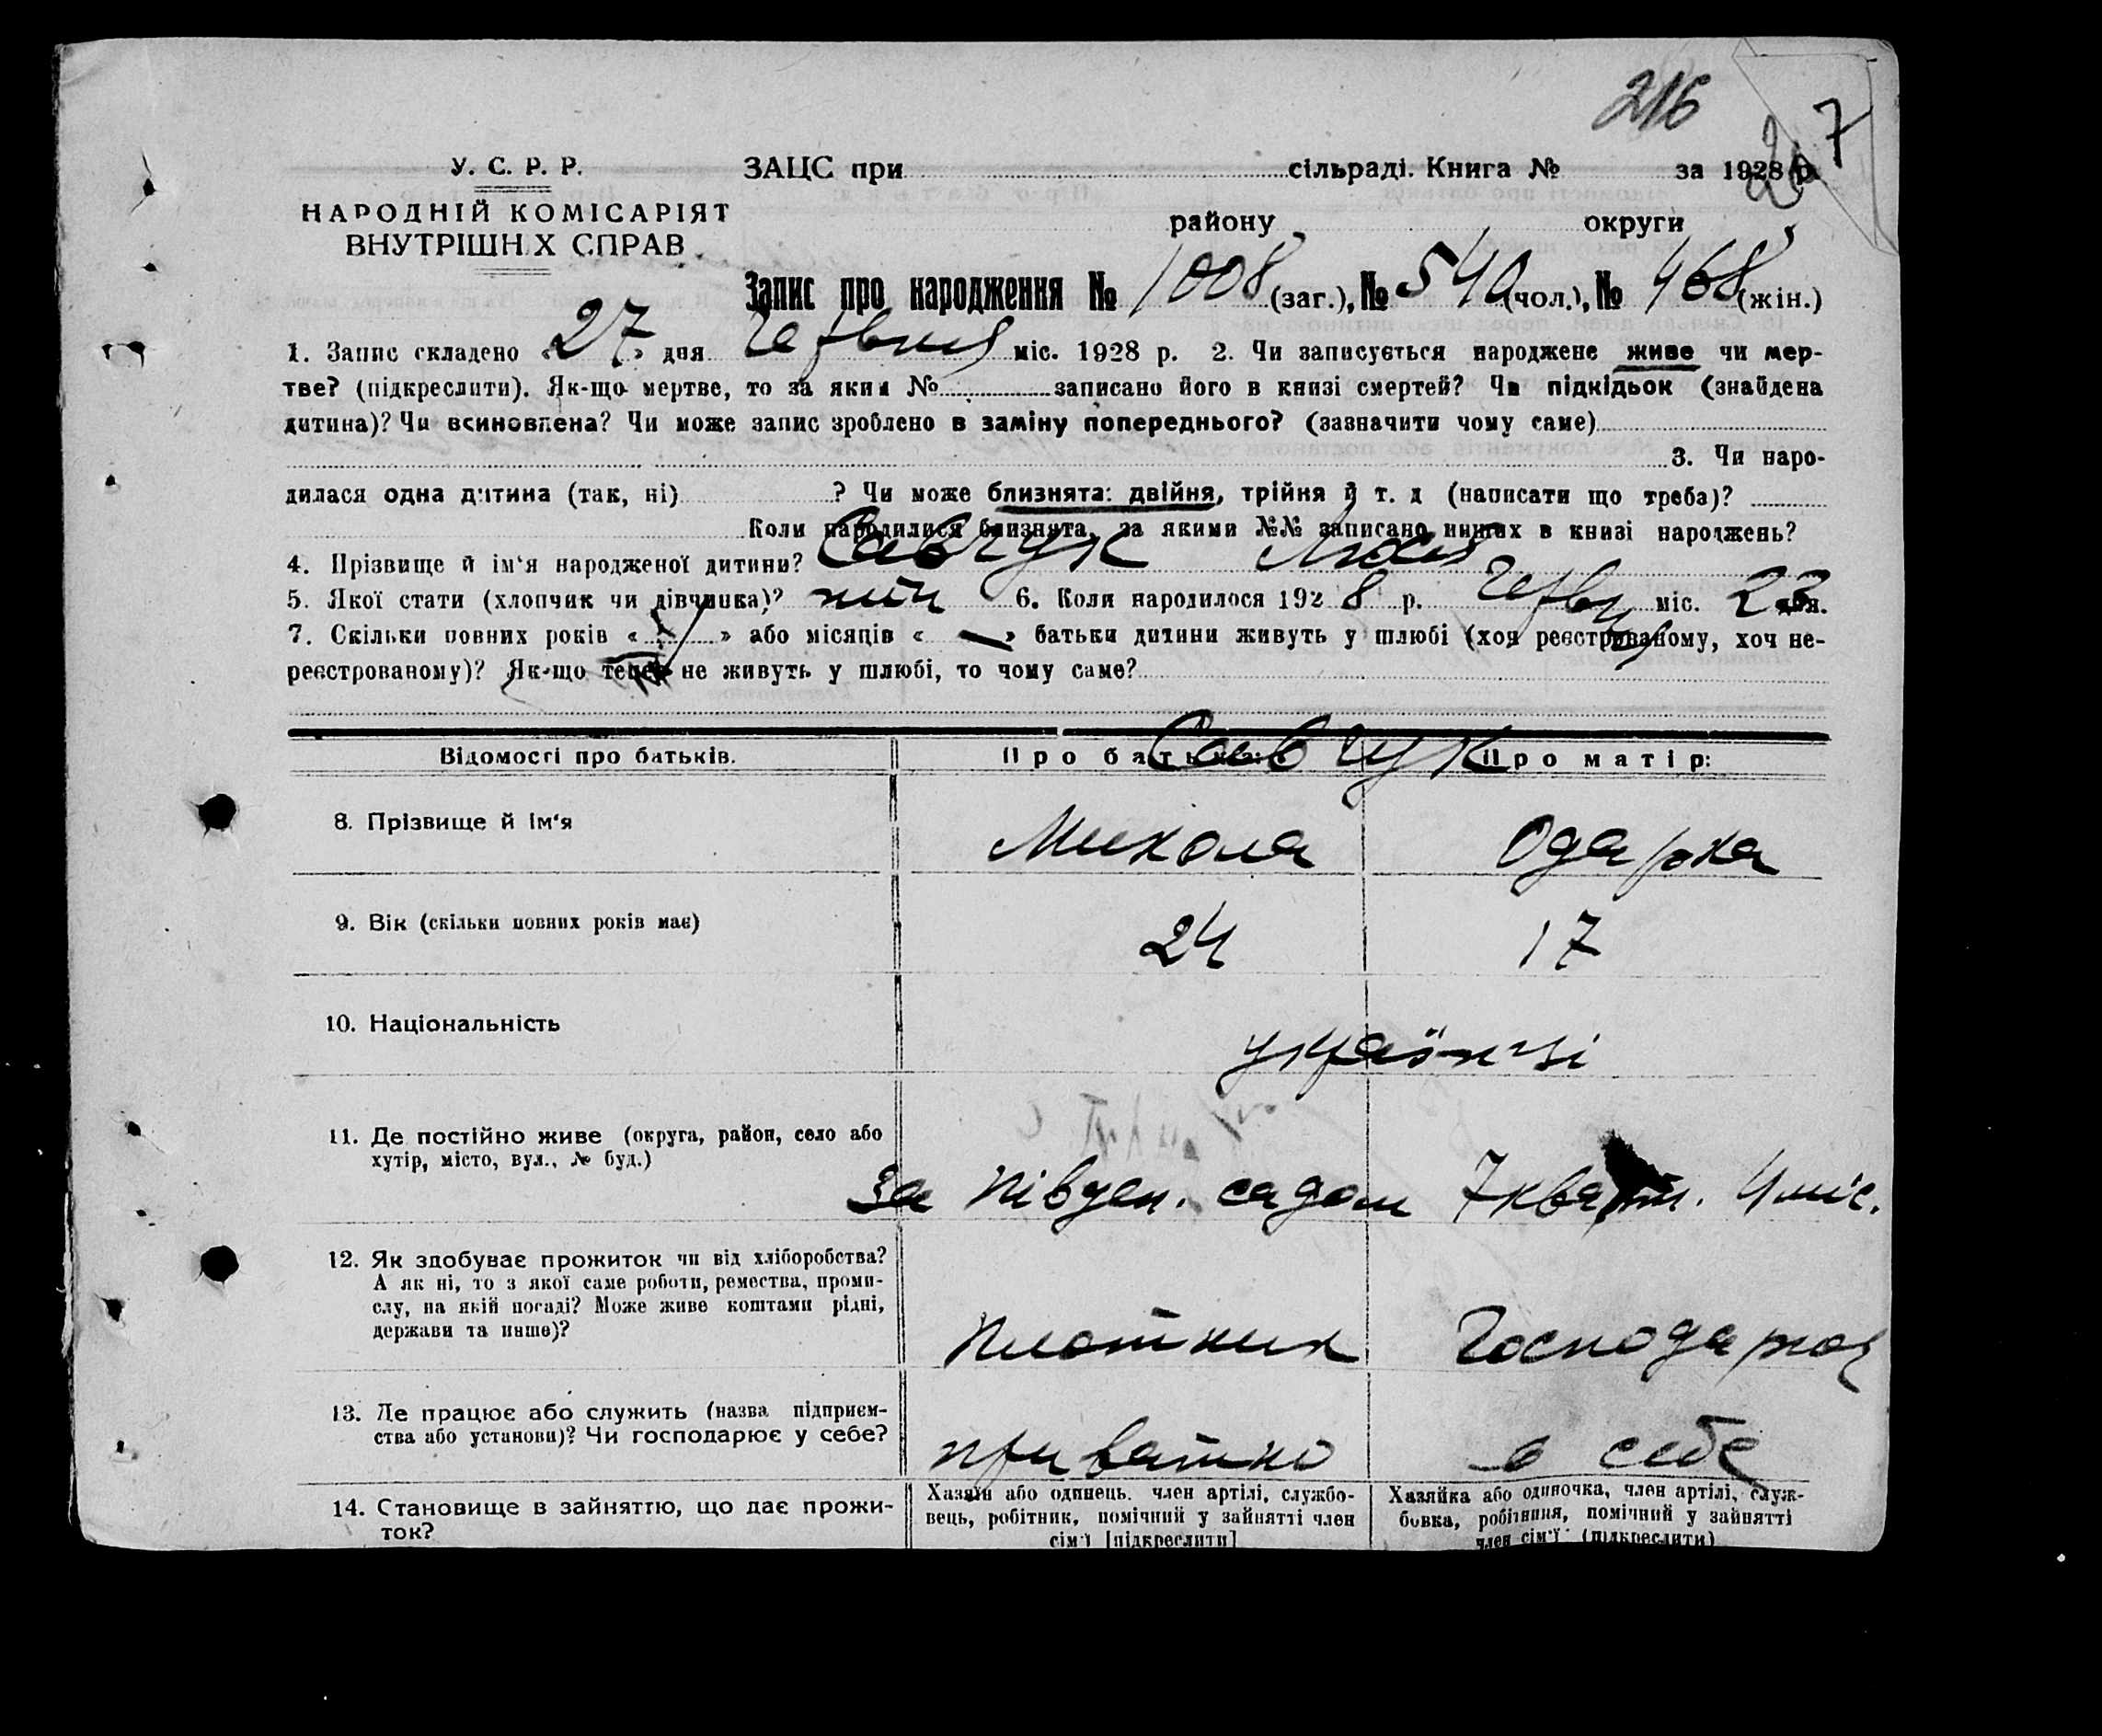 216
7
У. С. Р. Р.
ЗАЦС при сільраді. Книга № за 1928 р.
НАРОДНІЙ КОМІСАРІЯТ
ВНУТРІШН Х СПРАВ
району округи
Запис про народження № 1008 (заг.), № 540 (чол.), № 468 (жін.)
1. Запис складено « 27 » дня червня міс. 1928 р. 2. Чи записується народжене живе чи мер-
тве? (підкреслити). Як-що мертве, то за яким № записано його в книзі смертей? Чи підкідьок (знайдена
дитина)? Чи всиновлена? Чи може запис зроблено в заміну попереднього? (зазначити чому саме)
3. Чи наро-
дилася одна дитина (так, ні) ? Чи може близнята: двійня, трійня й т. д (написати що треба)?
Коли народилися близнята, за якими №№ записано инших в книзі народжень?
4. Прізвище й ім'я народженої дитини? Савчук
5. Якої стати (хлопчик чи дівчинка)? жін 6. Коли народилося 1928 р. червня міс. дня.
7. Скільки повних років « » або місяців « — » батьки дитини живуть у шлюбі (хоч реєстрованому, хоч не-
реєстрованому)? Як-що тепер не живуть у шлюбі, то чому саме?
Відомості про батьків. Про батька: Про матір:
Савчук
8. Прізвище й ім'я Микола Одарка
9. Вік (скільки повних років має) 24 17
10. Національність українці
11. Де постійно живе (округа, район, село або
хутір, місто, вул., № буд.)
За півден. садом 7 кварт. 4 міс.
12. Як здобуває прожиток чи від хліборобства?
А як ні, то з якої саме роботи, ремества, проми-
слу, на якій посаді? Може живе коштами рідні,
держави та инше)?
Плотник Господарює
13. Де працює або служить (назва підприєм-
ства або установи)? Чи господарює у себе?
приватно в себе
14. Становище в зайняттю, що дає прожи-
ток?
Хазяїн або одинець. член артілі, службо-
вець, робітник, помічний у зайнятті член
сім'ї [підкреслити]
Хазяйка або одиночка, член артілі, служ-
бовка, робітниця, помічний у зайнятті
член сім'ї (підкреслити)